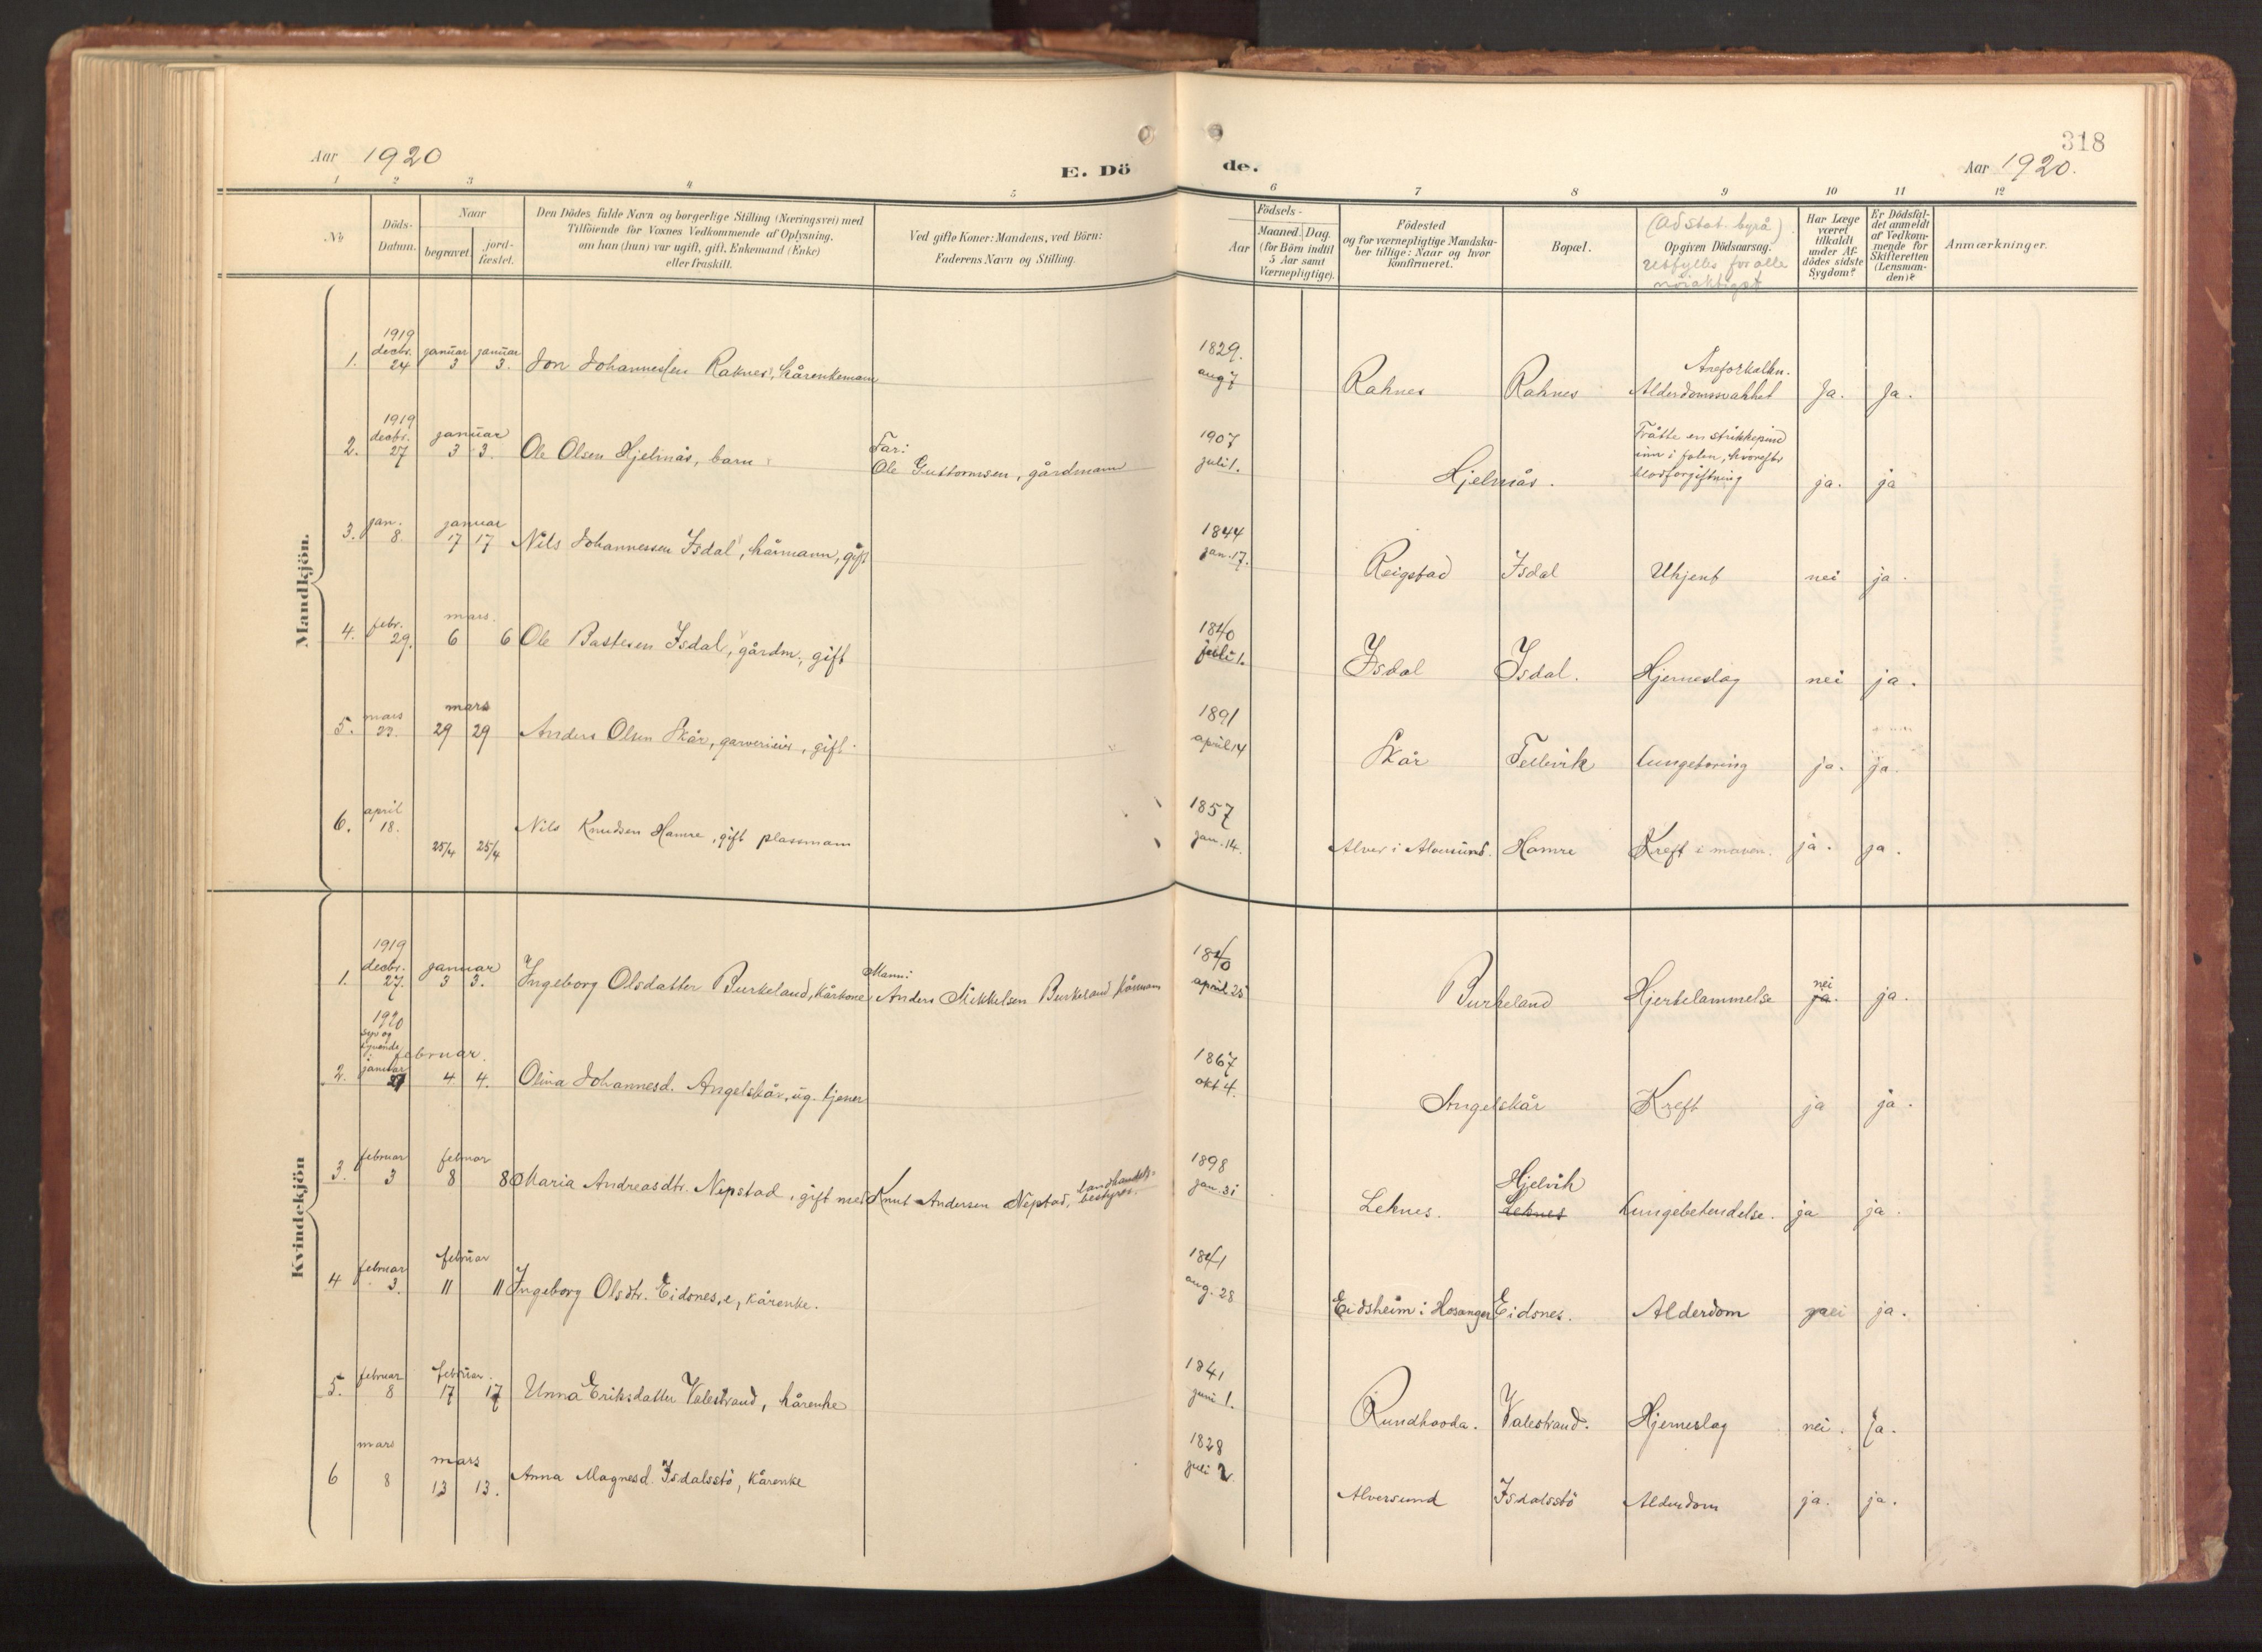 318
Aar 1920
E. Döde.
Aar 1920.
1 2 3 4 5 6 7 8 9 10 11 12
No
Döds-Datum.
Naar
begravet.
jord-fæstet.
Den Dödes fulde Navn og borgerlige Stilling (Næringsvei) med
Tilföiende for Voxnes Vedkommende af Oplysning,
om han (hun) var ugift, gift, Enkemand (Enke)
eller fraskilt.
Ved gifte Koner: Mandens, ved Börn:
Faderens Navn og Stilling.
Födsels-
Aar
Maaned. Dag.
(for Börn indtil
5 Aar samt
Værnepligtige).
Födested
og for værnepligtige Mandska-
ber tillige: Naar og hvor
konfirmeret.
Bopæl.
(Ad Stat. byrå)
Opgiven Dödsaarsag.
Utfylles for alle
nöiaktigst
Har Læge
været
tilkaldt
under Af-
dödes sidste
Sygdom?
Er Dödsfal-
det anmeldt
af Vedkom-
mende for
Skifteretten
(Lensman-
den)?
Anmærkninger.
Mandkjön.
1. 1919 decbr. 24 januar 3 januar 3. Jon Johannessen Raknes, kårenkemann 1829. aug 7 Raknes Raknes Åreforkalkn. Alderdomssvakhet Ja. Ja.
2. 1919 decbr. 27 januar 3 3. Ole Olsen Hjelmås, barn Far: Ole Guttormsen, gårdmann 1907 juli 1. Hjelmås. Trådte en strikkepind inn i foten, hvorefter blodforgiftning ja. ja
3. jan. 8. januar 17 17 Nils Johannessen Isdal, kårmann, gift 1844 jan. 17. Reigstad Isdal Ukjent nei ja.
4. febr. 29. mars. 6 6 Ole Bastesen Isdal, gårdm., gift 1840 juli 1. Isdal Isdal. Hjerneslag nei ja.
5. mars 23. mars 29 29 Anders Olsen Skår, garverieier, gift 1891 april 14 Skår Tellevik Lungetæring ja. ja.
6. april 18. 25/4 25/4 Nils Knudsen Hamre, gift plassmann 1857 jan. 14. Alver i Alversund. Hamre Kreft i maven. ja. ja.
Kvindekjön
1. 1919 decbr. 27. januar 3 3. Ingeborg Olsdatter Burkeland, kårkone Mann: Anders Mikkelsen Burkeland kårmann 1840 april 25 Burkeland Hjertelammelse nei ja. ja.
2. 1920 syv og tyvende januar 27 februar. 4 4. Olina Johannesd. Angelskår, ug. tjener 1867 okt 4. Angelskår Kreft ja ja.
3. februar 3 februar 8 8 Maria Andreasdtr. Nepstad, gift med Knut Andersen Nepstad, landhandels-bestyrer. 1898 jan. 31 Leknes. Hjelvik Leknes Lungebetendelse. ja ja.
4 februar 3. februar 11 11 Ingeborg Olsdtr. Eidsnes, e, kårenke. 1841 aug. 28 Eidsheim i Hosanger Eidsnes. Alderdom nei ja.
5. februar 8 februar. 17 17 Unna Eriksdatter Valestrand, kårenke 1841 juni 1. Rundhovda. Valestrand. Hjerneslag nei. Ja.
6 mars 8 mars 13 13. Anna Magnesd. Isdalsstö, kårenke 1828 juli 2 Alversund Isdalsstö Alderdom ja. ja.